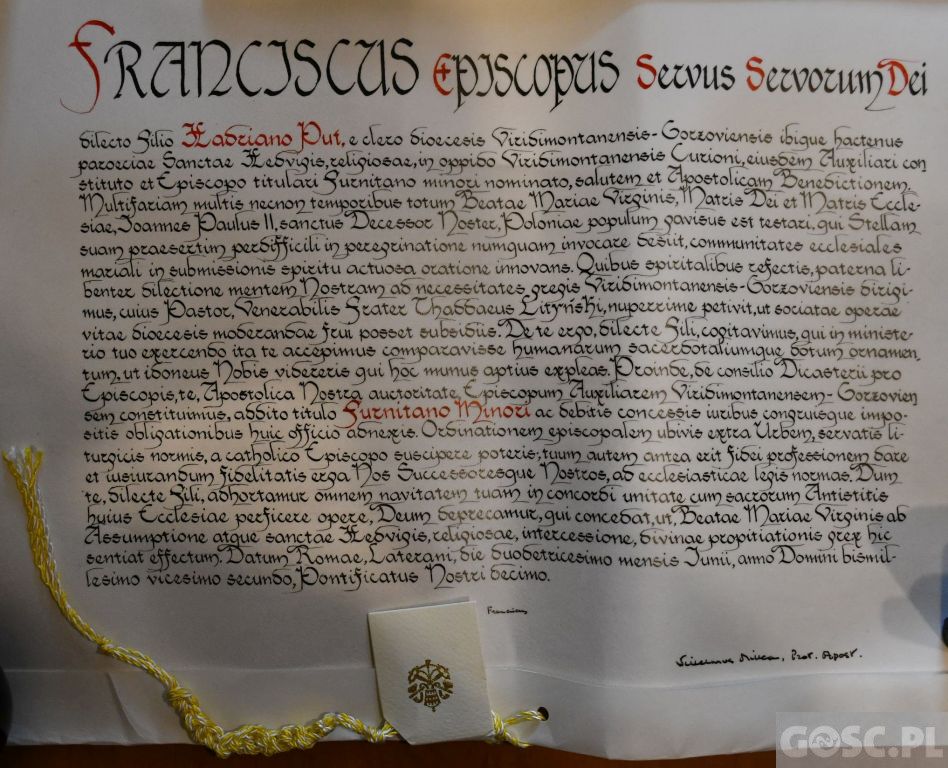 Franciscus Episcopus Servus Servorum Dei
dilecto Filio Hadriano Put, e clero dioecesis Viridimontanensis-Gorzoviensis ibique hactenus
paroeciae Sanctae Hedvigis, religiosae, in oppido Viridimontanensi Curioni, eiusdem Auxiliari con
stituto et Episcopo titulari Furnitano minori nominato, salutem et Apostolicam Benedictionem.
Multifariam multis necnon temporibus totum Beatae Mariae Virginis, Matris Dei et Matris Eccle-
siae, Joannes Paulus II, sanctus Decessor Noster, Poloniae populum gavisus est testari, qui Stellam
suam praesertim perdifficili in peregrinatione numquam invocare desiit, communitates ecclesiales
mariali in submissionis spiritu actuosa oratione innovans. Quibus spiritalibus refectis, paterna li-
benter dilectione mentem Nostram ad necessitates gregis Viridimontanensis-Gorzoviensis dirigi-
mus, cuius Pastor, Venerabilis Frater Thaddaeus Lityński, nuperrime petivit, ut sociatae operae
vitae dioecesis moderandae frui posset subsidiis. De te ergo, dilecte Fili, cogitavimus, qui in ministe-
rio tuo exercendo ita te accepimus comparavisse humanarum sacerdotaliumque dotum ornamen
tum, ut idoneus Nobis videreris qui hoc munus aptius expleas. Proinde, de consilio Dicasterii pro
Episcopis, te, Apostolica Nostra auctoritate, Episcopum Auxiliarem Viridimontanensem-Gorzovien
sem constituimus, addito titulo Furnitano Minori ac debitis concessis iuribus congruisque impo-
sitis obligationibus huic officio adnexis. Ordinationem episcopalem ubivis extra Urbem, servatis li-
turgicis normis, a catholico Episcopo suscipere poteris; tuum autem antea erit fidei professionem dare
et iusiurandum fidelitatis erga Nos Successoresque Nostros, ad ecclesiasticae legis normas. Dum
te, dilecte Fili, adhortamur omnem navitatem tuam in concordi unitate cum sacrorum Antistitis
huius Ecclesiae perficere opere, Deum deprecamur, qui concedat, ut, Beatae Mariae Virginis ab
Assumptione atque sanctae Hedvigis, religiosae, intercessione, divinae propitiationis grex hic
sentiat effectum. Datum Romae, Laterani, die duodetricesimo mensis Iunii, anno Domini bismil-
lesimo vicesimo secundo, Pontificatus Nostri decimo.
Franciscus
Prot. Apost.
GOSC.PL